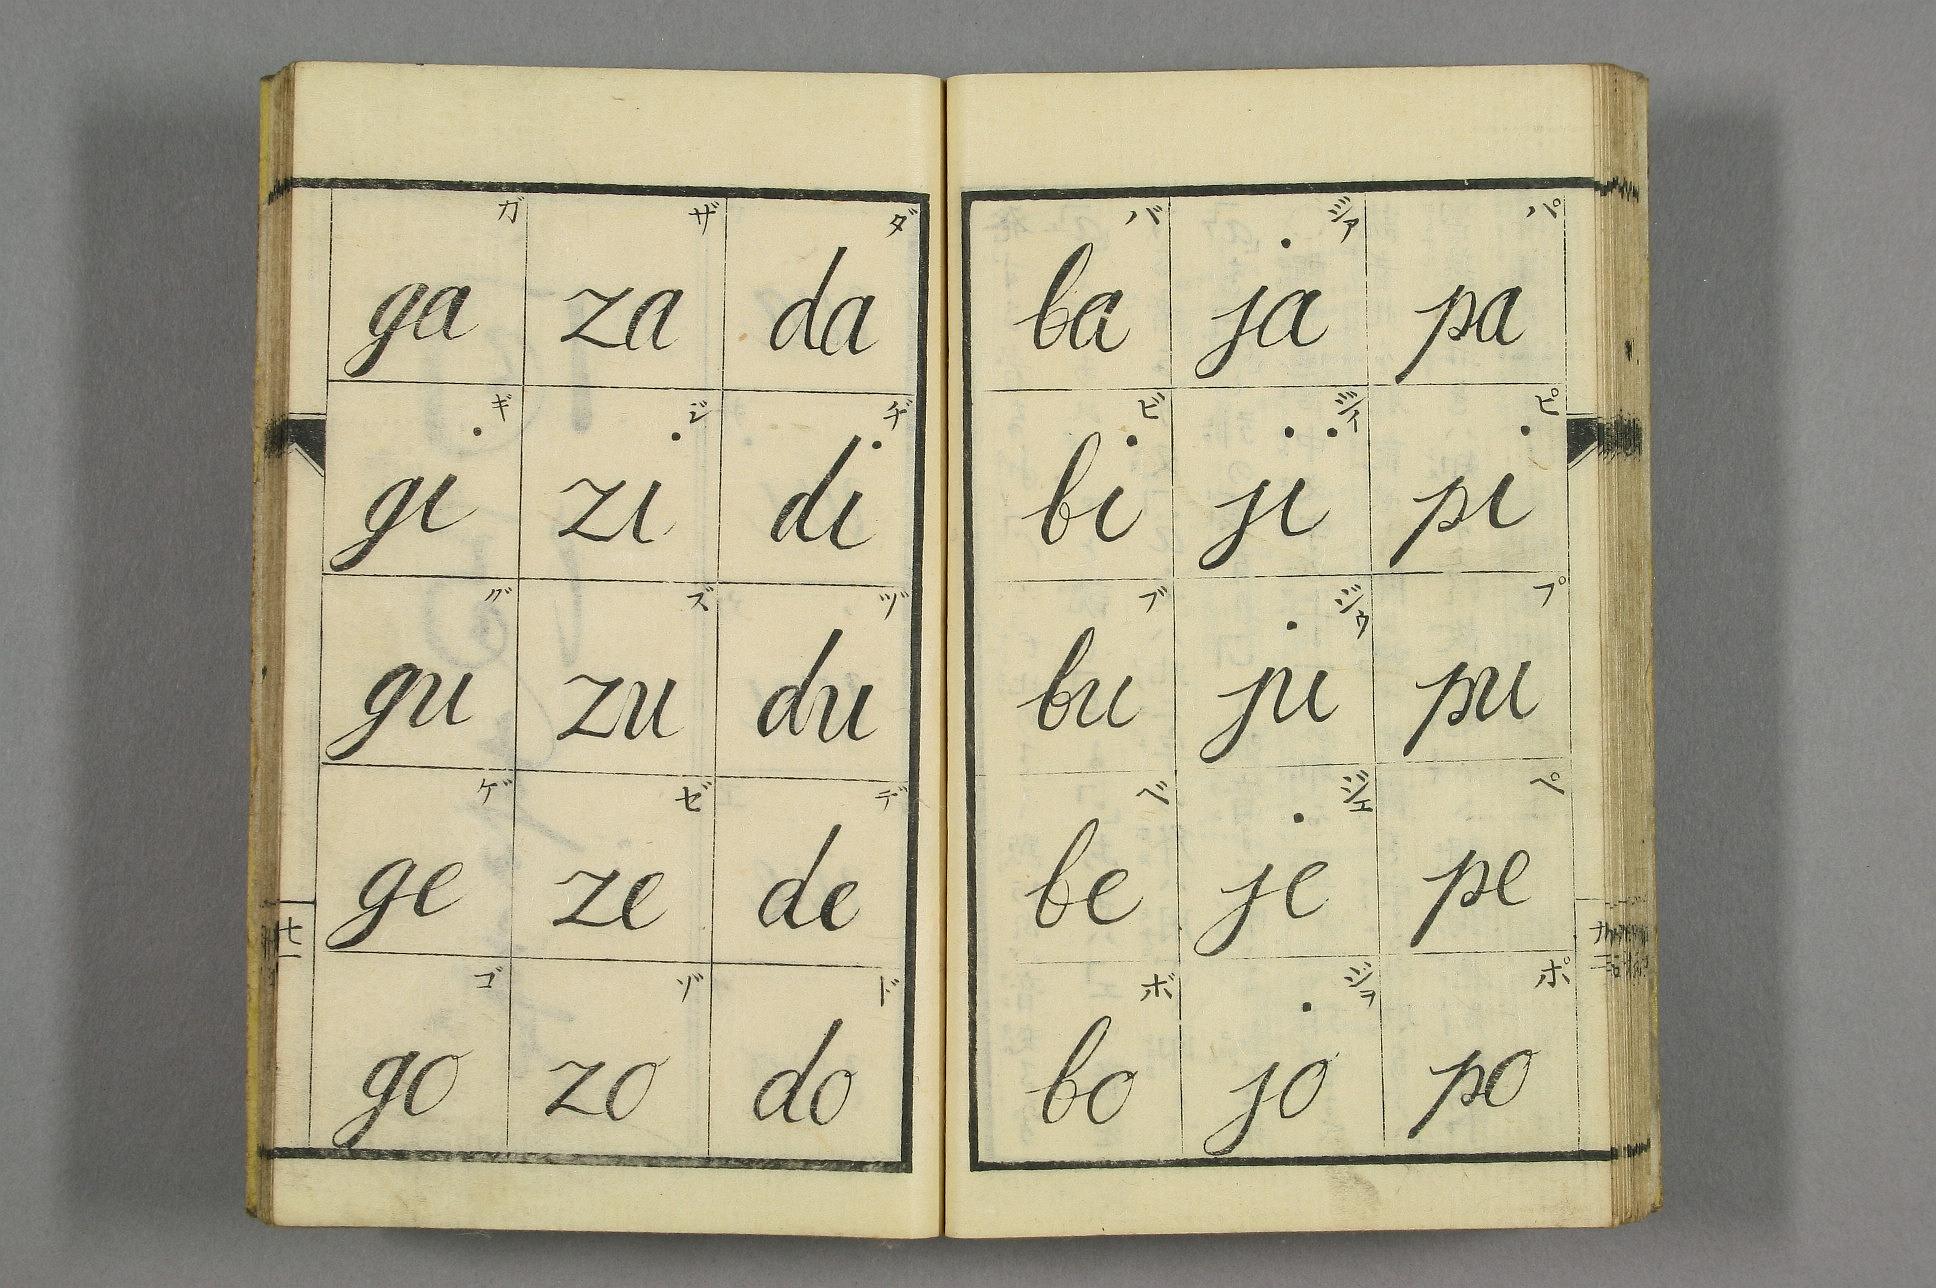 ガ ザ ダ
ga za da
ギ ジ ヂ
gi zi di
グ ズ ヅ
gu zu du
ゲ ゼ デ
ge ze de
ゴ ゾ ド
go zo do
七
バ ジァ パ
ba ja pa
ビ ジィ ピ
bi ji pi
ブ ジゥ プ
bu ju pu
ベ ジェ ペ
be je pe
ボ ジヲ ポ
bo jo po